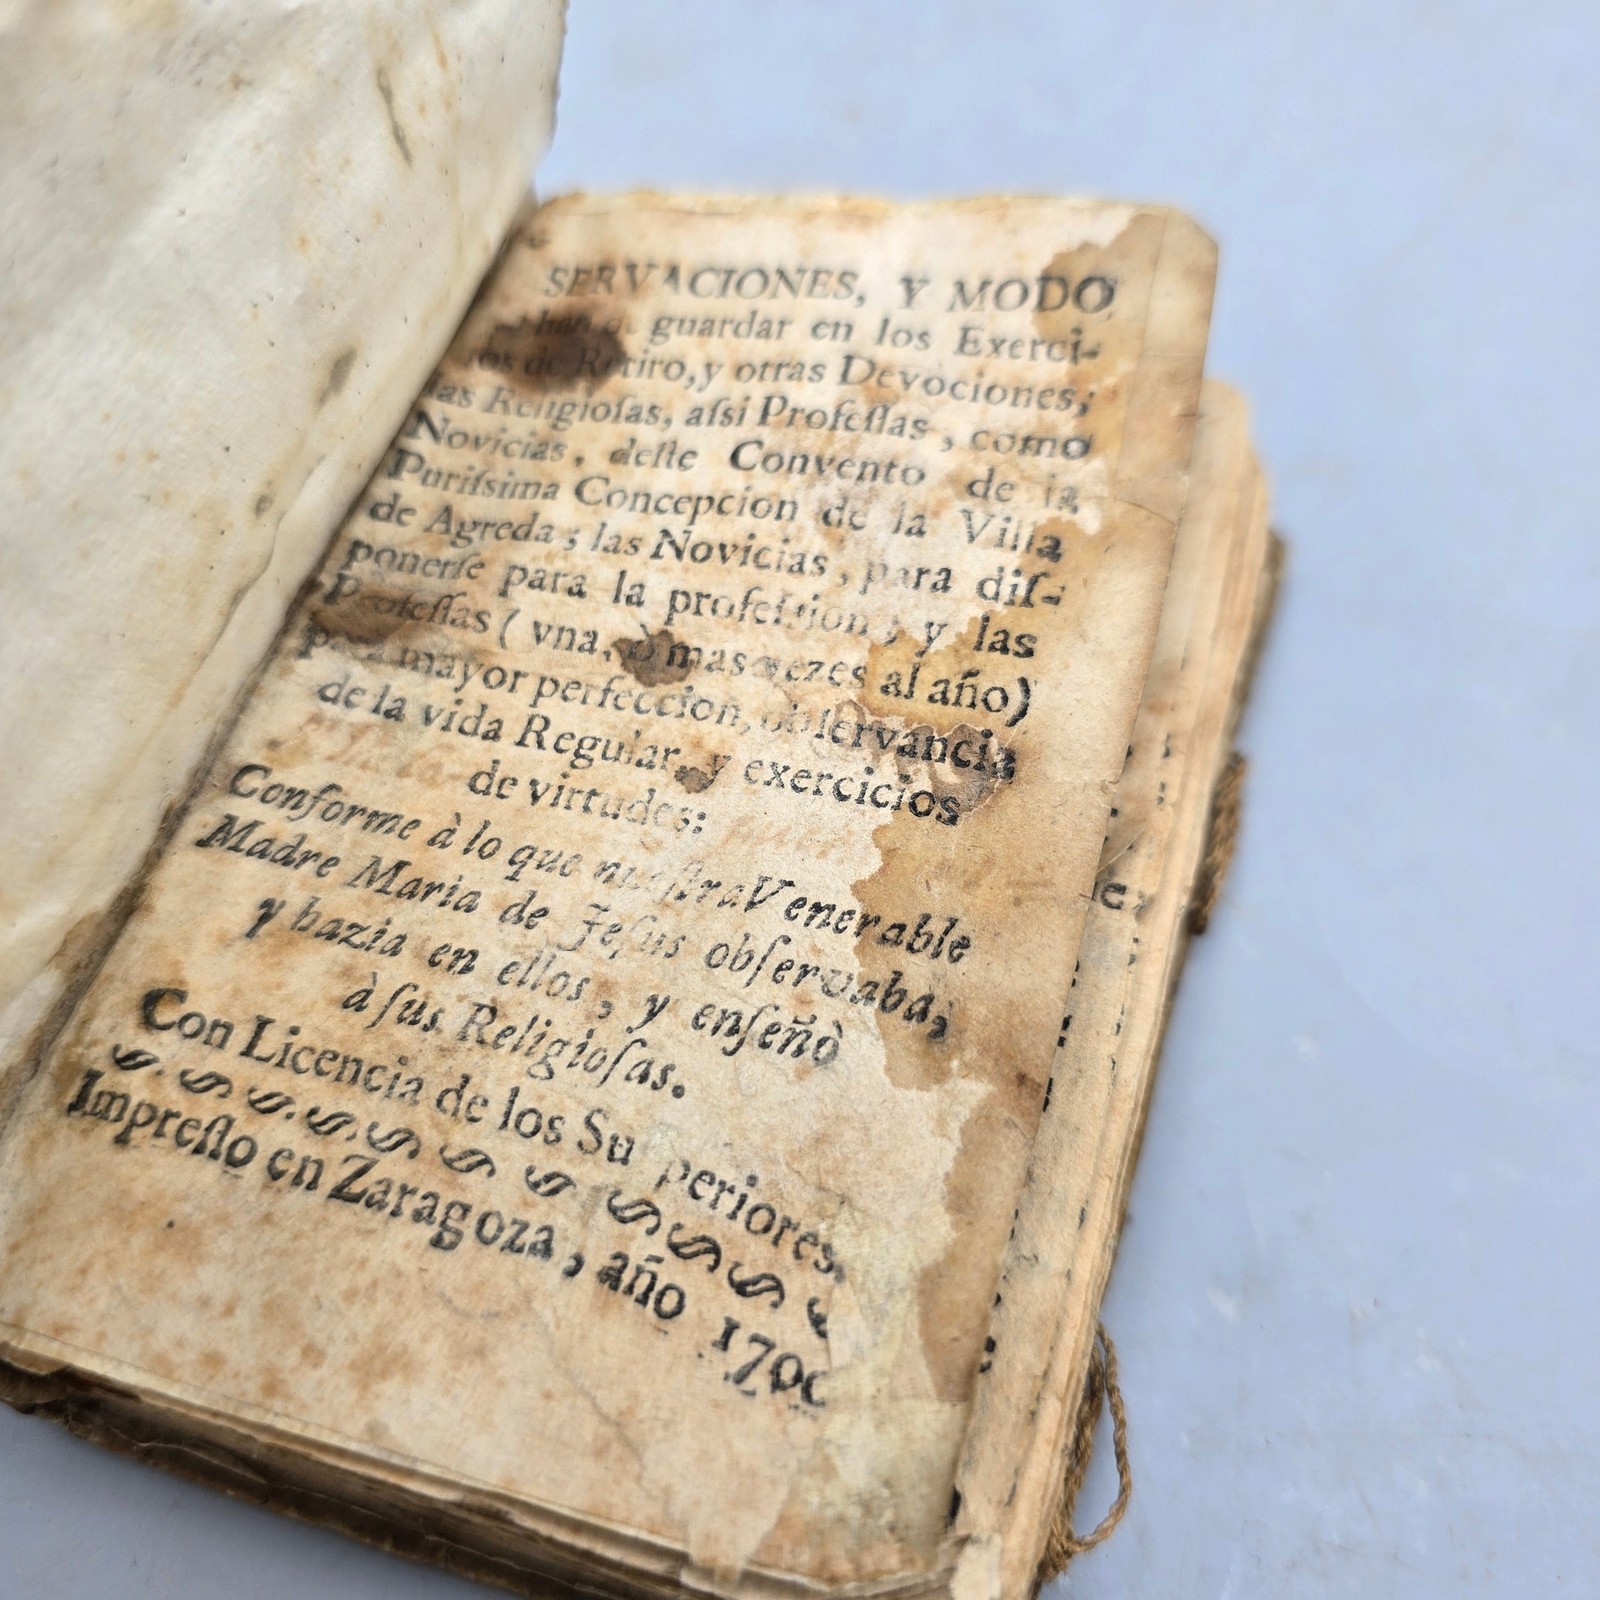 SERVACIONES, Y MODO
guardar en los Exerci-
de Retiro, y otras Devociones;
las Religioſas, aſsi Profeſſas, como
Novicias, deſte Convento de la
Puriſsima Concepcion de la Villa
de Agreda; las Novicias, para diſ-
ponerſe para la profeſsion; y las
Profeſſas ( vna, ò mas vezes al año)
para mayor perfeccion, obſervancia
de la vida Regular, y exercicios
de virtudes:
Conforme à lo que nueſtra Venerable
Madre Maria de Jeſus obſervaba,
y hazia en ellos, y enſeñò
à ſus Religioſas.
Con Licencia de los Superiores.
Impreſſo en Zaragoza, año 170